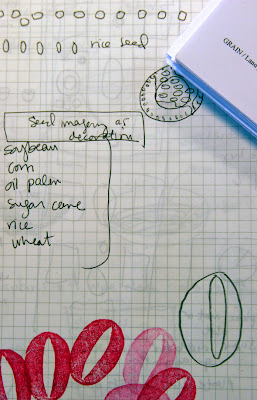 rice seed
GRAIN / Land
Seed imagery as
decoration
soybean
corn
oil palm
sugar cane
rice
wheat